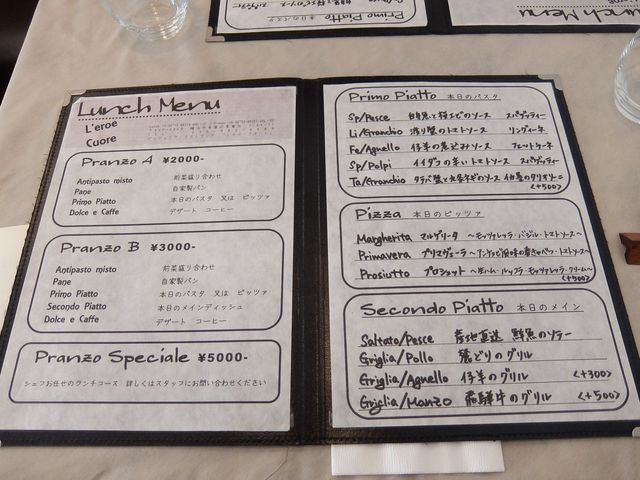 Lunch Menu
L'eroe
Cuore
Pranzo A ¥2000-
Antipasto misto 前菜盛り合わせ
Pane 自家製パン
Primo Piatto 本日のパスタ 又は ピッツァ
Dolce e Caffe デザート コーヒー
Pranzo B ¥3000-
Antipasto misto 前菜盛り合わせ
Pane 自家製パン
Primo Piatto 本日のパスタ 又は ピッツァ
Secondo Piatto 本日のメインディッシュ
Dolce e Caffe デザート コーヒー
Pranzo Speciale ¥5000-
シェフお任せのランチコース 詳しくはスタッフにお問い合わせください
Primo Piatto 本日のパスタ
Sp/Pesce 白身魚と桜エビのソース スパゲッティー
Li/Granchio 渡り蟹のトマトソース リングイーネ
Fe/Agnello 仔羊の煮込みソース フェットチーネ
Sp/Polpi イイダコの辛いトマトソース スパゲッティー
Ta/Granchio タラバ蟹と九条ネギのソース タリオリーニ
<+500>
Pizza 本日のピッツァ
Margherita マルゲリータ 〜モッツァレッラ・バジル・トマトソース〜
Primavera プリマヴェーラ
Prosciutto プロシュット 〜生ハム・ルッコラ・モッツァレッラ・クリーム〜
<+500>
Secondo Piatto 本日のメイン
Saltato/Pesce 産地直送 鮮魚のソテー
Griglia/Pollo 鶏どりのグリル
Griglia/Agnello 仔羊のグリル <+300>
Griglia/Manzo 飛騨牛のグリル <+500>
Primo Piatto 本日のパスタ
Lunch Menu